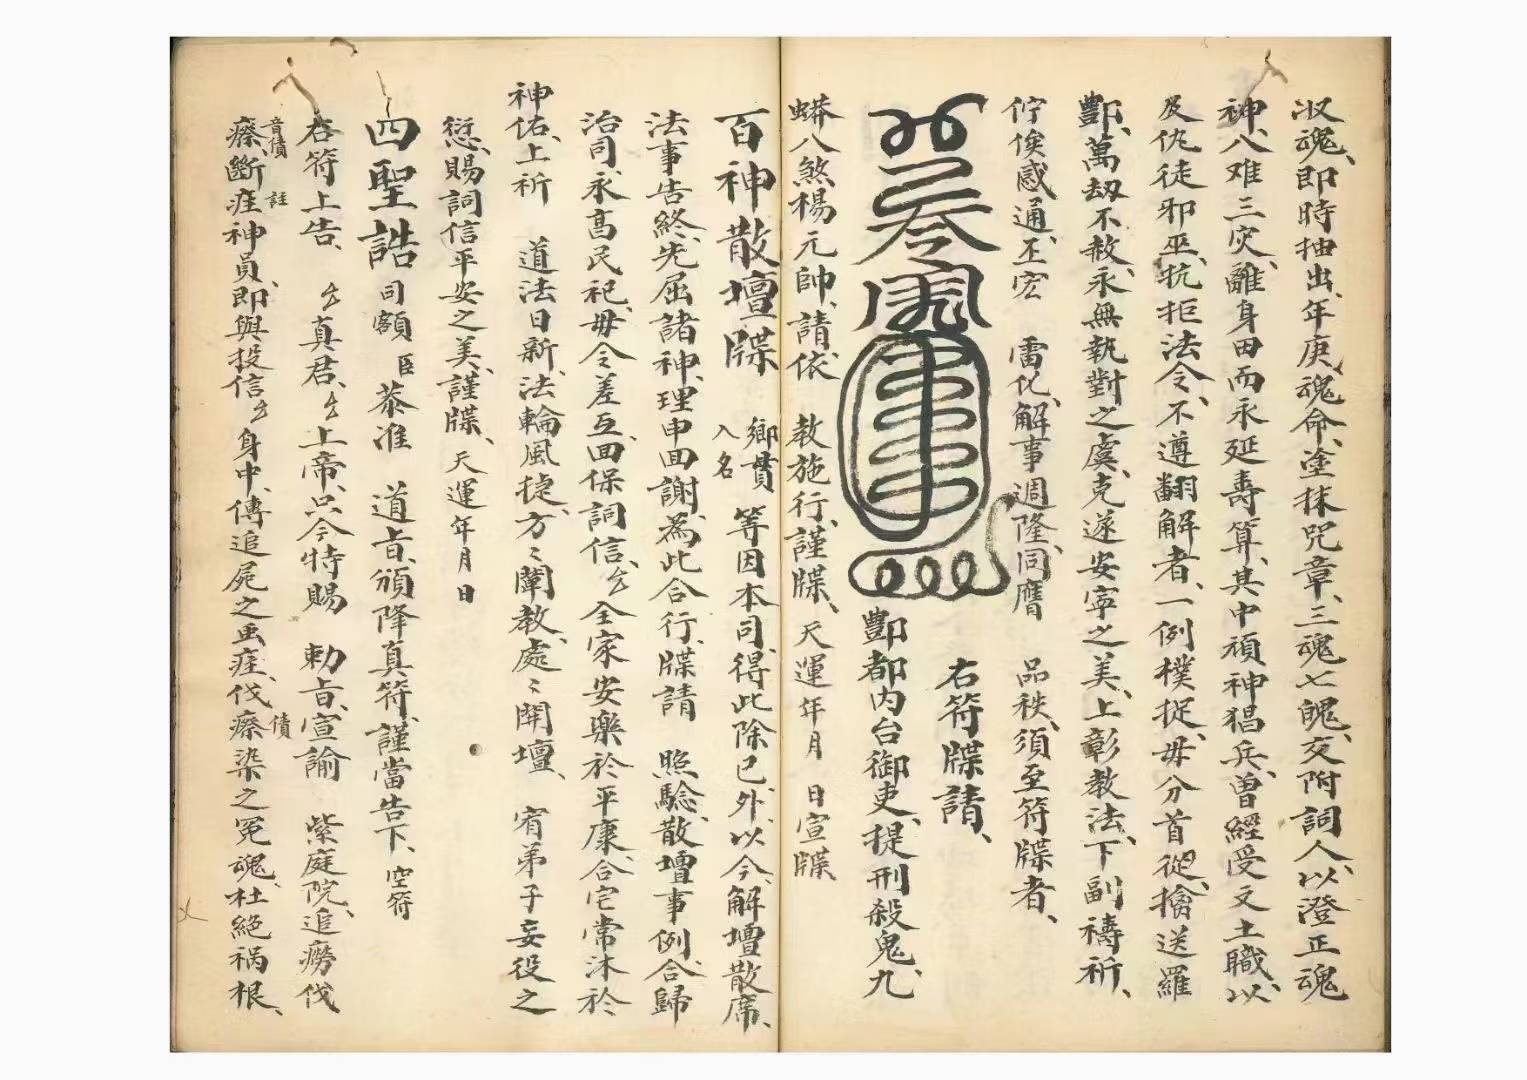 收魂、即時抽出、年庚魂命、塗抹咒章、三魂七魄、交附詞人、以澄正魂
神、八难三灾、離身田而永延壽算、其中頑神猖兵、曾經受文土職、以
及仇徒邪巫、抗拒法令、不遵翻解者、一例樸捉、毋分首從、擒送羅
酆、萬刼不赦、永無執對之虞、克遂安寧之美、上彰教法、下副禱祈、
佇俟感通、丕宏 雷化、解事週隆、同膺 品秩、須至符牒者、
右符牒請、
酆都内台御吏、提刑殺鬼、九
蟒八煞楊元帥、請依 教施行、謹牒、天運年月 日宣牒
百神散壇牒 鄉貫 入名 等因本司、得此除已外、以今、解壇散席、
法事告終、先屈諸神、理申回謝、為此合行、牒請 照驗、散壇事例、合歸
治司、永髙民祀、毋令差互、回保詞信、厶全家安樂於平康、合宅常沐於
神佑、上祈 道法日新、法輪風捷、方〻闡教、處〻開壇、 宥弟子妄役之
愆、賜詞信平安之美、謹牒、天運年月日
四聖誥 司額 臣 恭准 道旨、頒降真符、謹當告下、空符
右符上告、 厶真君、厶上帝、只今特賜 勅旨、宣諭 紫庭院、追癆伐
瘵、斷疰神員、即與投信厶身中、傳追屍之虫疰、伐瘵染之冤魂、杜絕祸根、
音債 註
債